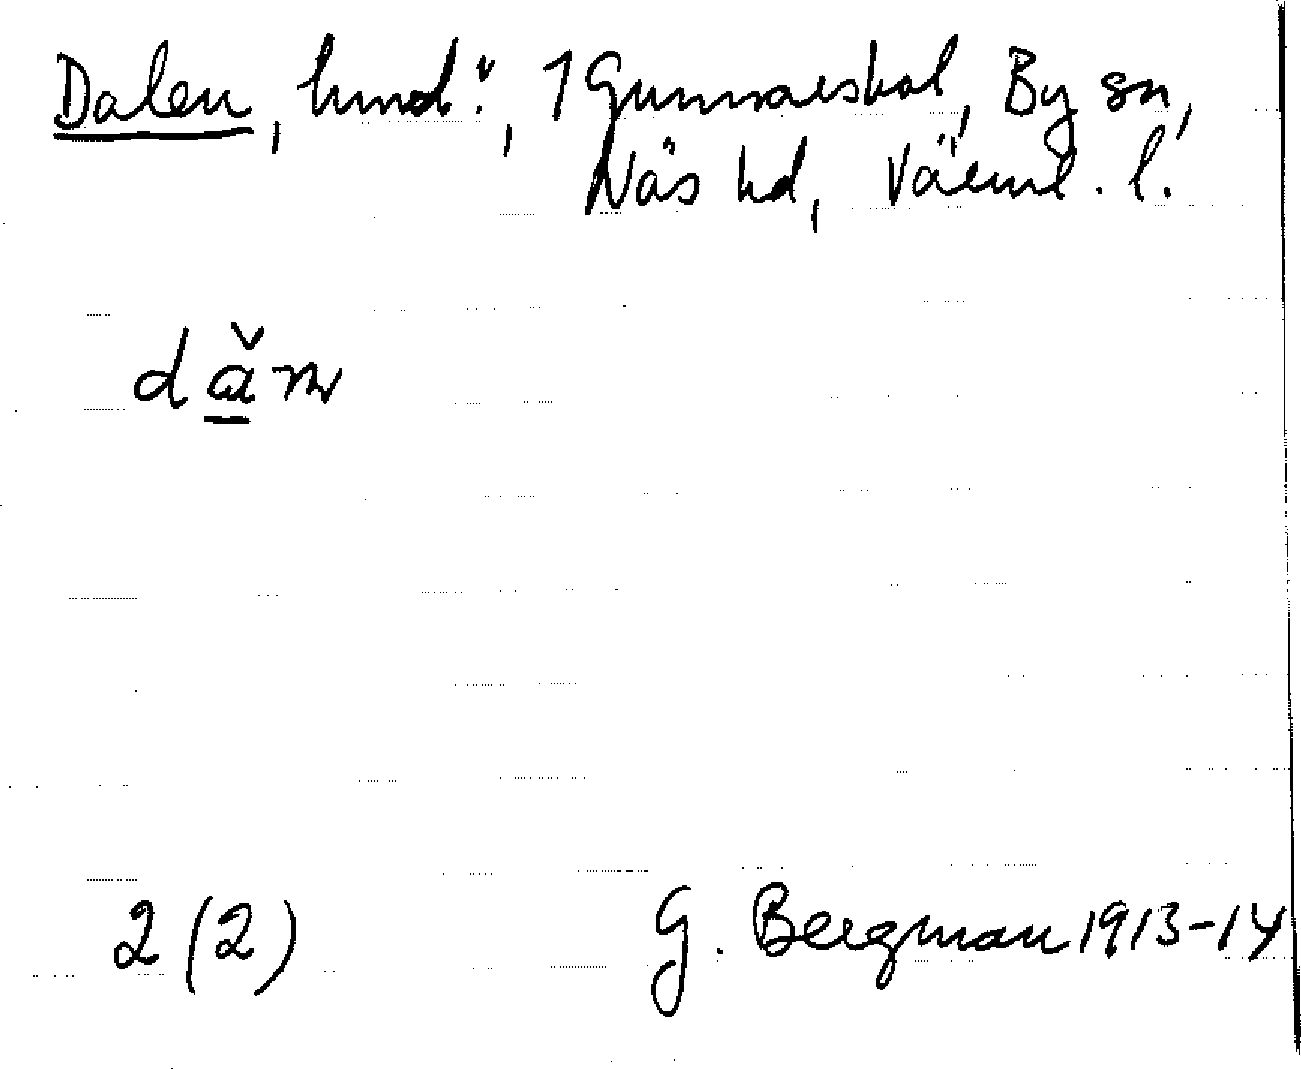 Dalen, hmd:, 1 Gunnarskol, By sn,
Näs hd, Värml. l.
dα̌n
2 (2) G. Bergman 1913-14